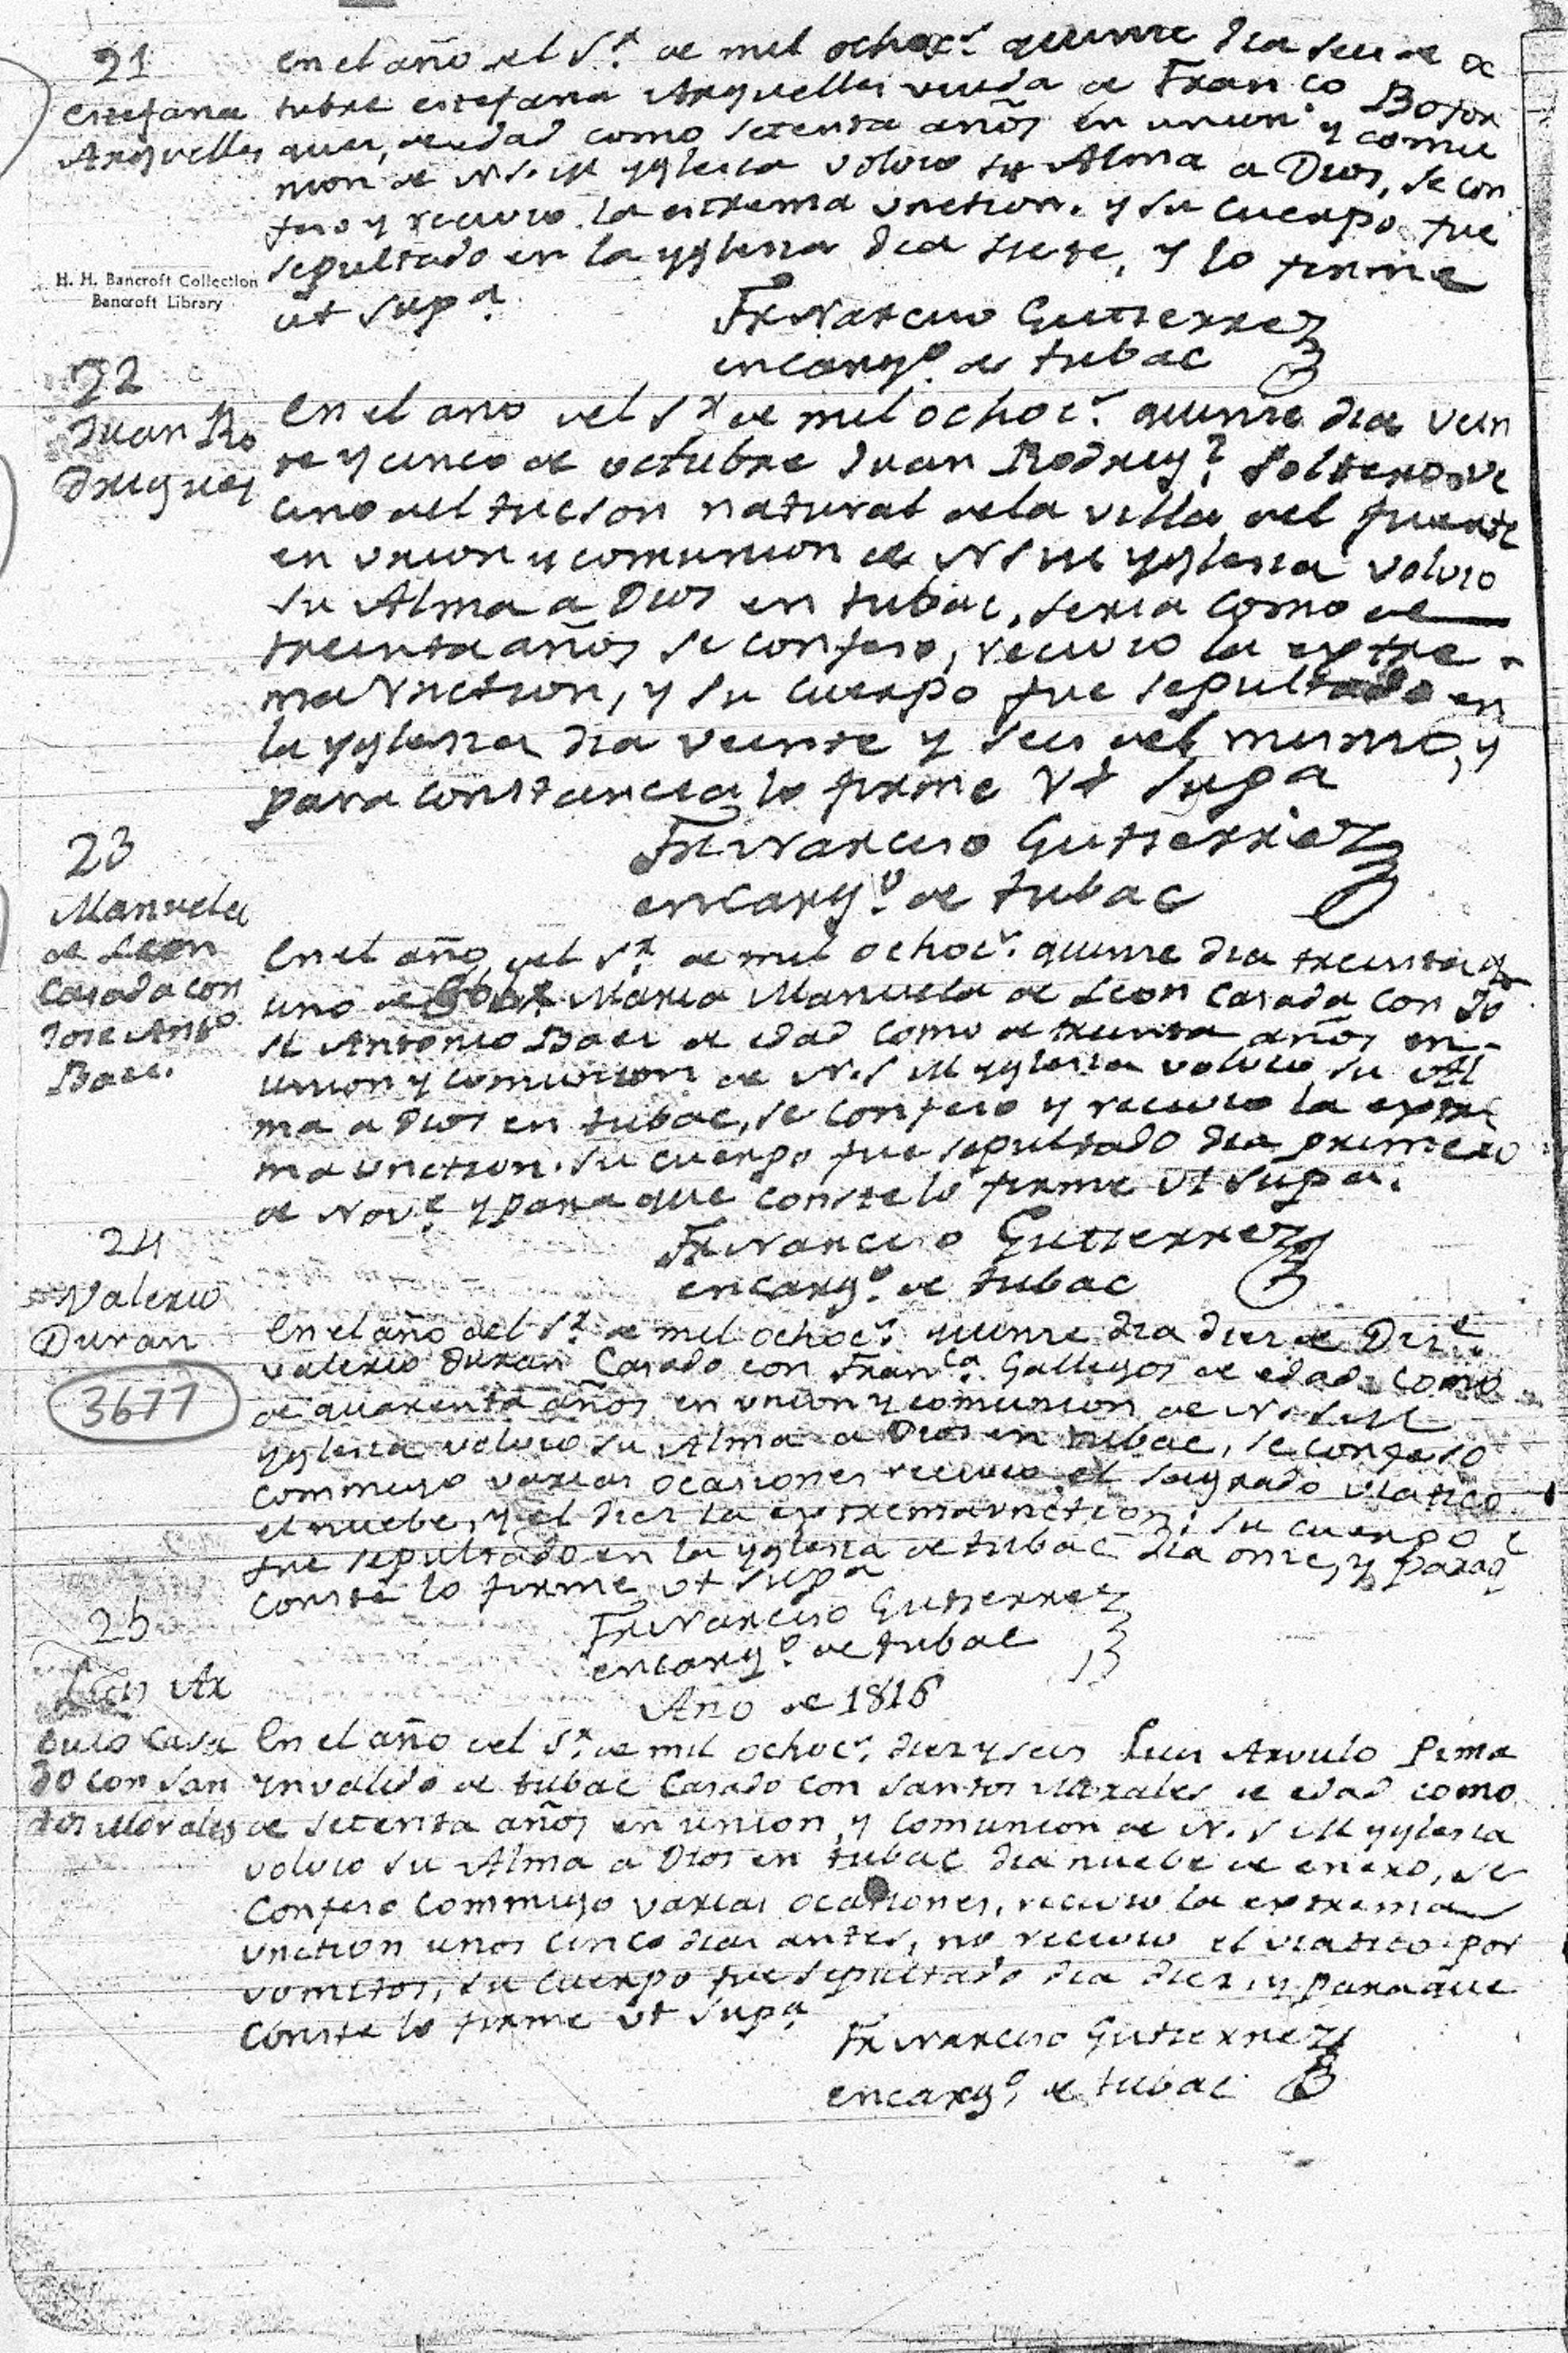 21
Estefana
Arguelles
En el año del Sr. de mil ochocs. quinse dia seis de oc
tubre estefana Arguelles viuda de Franco Bojor
ques, de edad como setenta años en union y comu
nion de N S. M yglesia volvio su Alma a Dios, se con
feso y recivio la estrema unction. y su cuerpo fue
sepultado en la yglesia dia siete, y lo firme
ut supa.
Fr Narciso Gutierrez
encargo. de tubac
H. H. Bancroft Collection
Bancroft Library
22
Juan Ro
driguez
En el ano del Sr de mil ochocs. quinse dia vein
te y cinco de octubre Juan Rodrigz. Soltero ve
cino del tucson natural dela villa del fuerte
en union y comunion de N S M yglesia volvio
su Alma a Dios en tubac, seria como de
treinta años se confeso, recivio la extre
ma Unction, y su cuerpo fue sepultado en
la yglesia dia veinte y seis del mismo, y
para constancia lo firme Ut supa
Fr Narciso Gutierrez
encargo. de tubac
23
Manuela
de Leon
Casada con
Jose Anto
Baes.
En el año, del Sr. de mil ochocs. quinse dia treinta y
uno de Octe. Maria Manuela de Leon Casada con Jo
se Antonio Baes de edad como de treinta años en
union y comunion de N. S M yglesia volvio su Al
ma a Dios en tubac, se confeso y recivio la extre
ma unction. su cuerpo fue sepultado dia primero
de Nove. y para que conste lo firme Ut supa.
Fr Narciso Gutierrez
encargo. de tubac
24
Valerio
Duran
3677
En el año del Sr. de mil ochocs. quinse dia dies de Dize.
valerio Duran Casado con Franca. Gallegos de edad como
de quarenta años en union y comunion de N. S M
yglesia volvio su Alma a Dios en tubac, se confeso
commugo varias ocasiones recivio el sagrado viatico
el nuebe, y el dies la extremaunction; su cuerpo
fue sepultado en la yglesia de tubac dia onse, y para q
conste lo firme ut supa
Fr Narciso Gutierrez
encargo. de tubac
25
Luis Ar
bulo Casa
do con San
tos Morales
Año de 1816
En el año del Sr. de mil ochocs. dies y seis Luis Arvulo Pima
ynvalido de tubac Casado con Santos Morales de edad como
de setenta años en union, y comunion de N. S M yglesia
volvio su Alma a Dios en tubac dia nuebe de enero, se
confeso commugo varias ocasiones, recivio la extrema
unction unos cinco dias antes, no recivio el viatico por
vomitos, su cuerpo fue sepultado dia dies, y para que
conste lo firme ut supa
Fr Narciso Gutierrez
encargo. de tubac